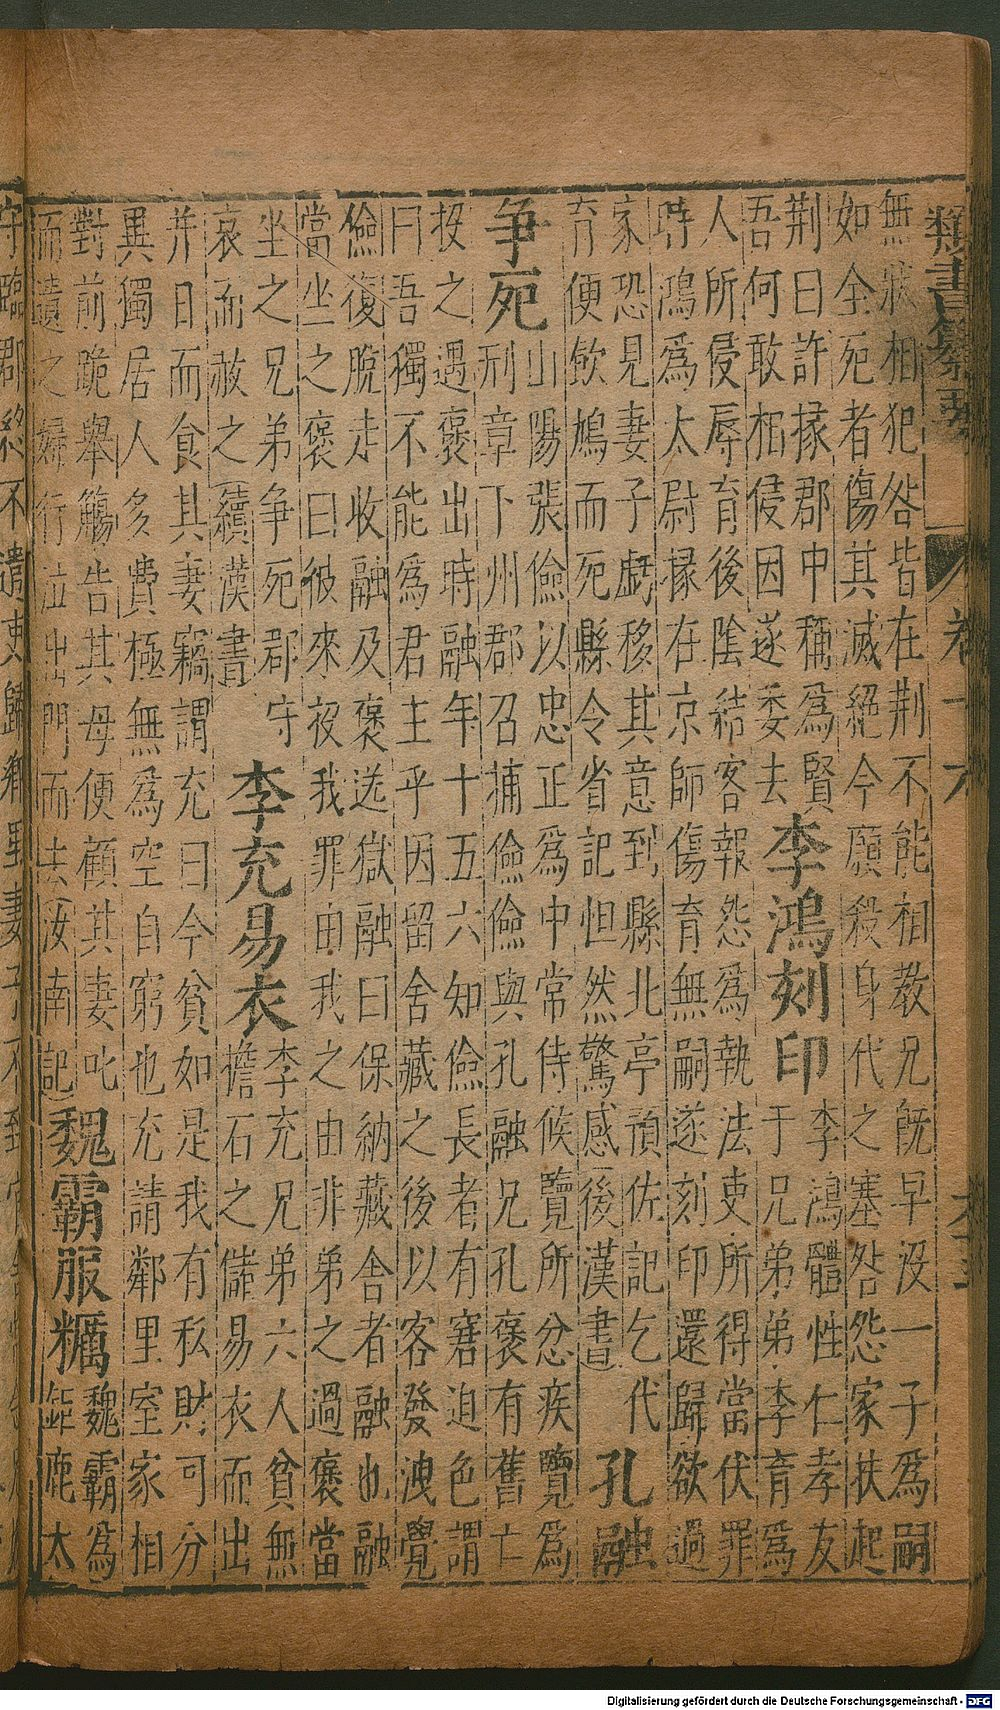 類書纂要
卷十六
無狀相犯咎皆在荆不能相教兄既早没一子為嗣
如全死者傷其滅絕今願殺身代之塞咎怨家扶起
荆曰許掾郡中稱為賢
吾何敢相侵因遂委去
李鴻刻印
李鴻體性仁孝友
于兄弟弟李育為
人所侵辱育後陰結客報怨為執法吏所得當伏罪
時鴻為太尉掾在京師傷育無嗣遂刻印還歸欲過
家恐見妻子虧移其意到縣北亭預佐記乞代
育便飲鴆而死縣令省記怛然驚感後漢書
孔融
爭死
山陽張儉以忠正為中常侍候覽所忿疾覽為
刑章下州郡召捕儉儉與孔融兄孔褒有舊亡
投之遇褒出時融年十五六知儉長者有窘迫色謂
曰吾獨不能為君主乎因留舍藏之後以客發洩覺
儉復脫走收融及褒送獄融曰保納藏舍者融也融
當坐之褒曰彼來夜我罪由我之由非弟之過褒當
坐之兄弟爭死郡守
哀而赦之續漢書
李充易衣
李充兄弟六人貧無
擔石之儲易衣而出
并日而食其妻竊謂充曰今貧如是我有私財可分
異獨居人多費極無為空自窮也充請鄰里室家相
對前跪舉觴告其母便顧其妻叱
而遣之婦行泣出門而去汝南記
魏霸服糲
魏霸為
鉅鹿太
守臨郡終不遣吏歸鄉里妻子不到官
Digitalisierung gefördert durch die Deutsche Forschungsgemeinschaft - DFG